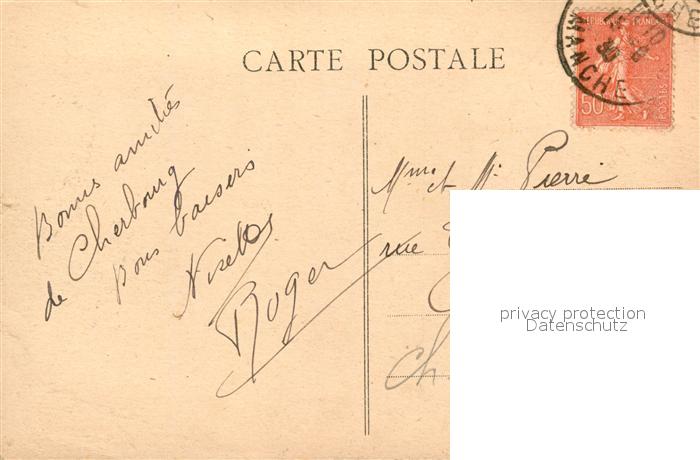 CARTE POSTALE
REPUBLIQUE FRANÇAISE
50
POSTES
MANCHE
Bonnes amitiés
de Cherbourg
Bons baisers
Roger
Mme et Mr Pierre
rue
Ch
privacy protection
Datenschutz